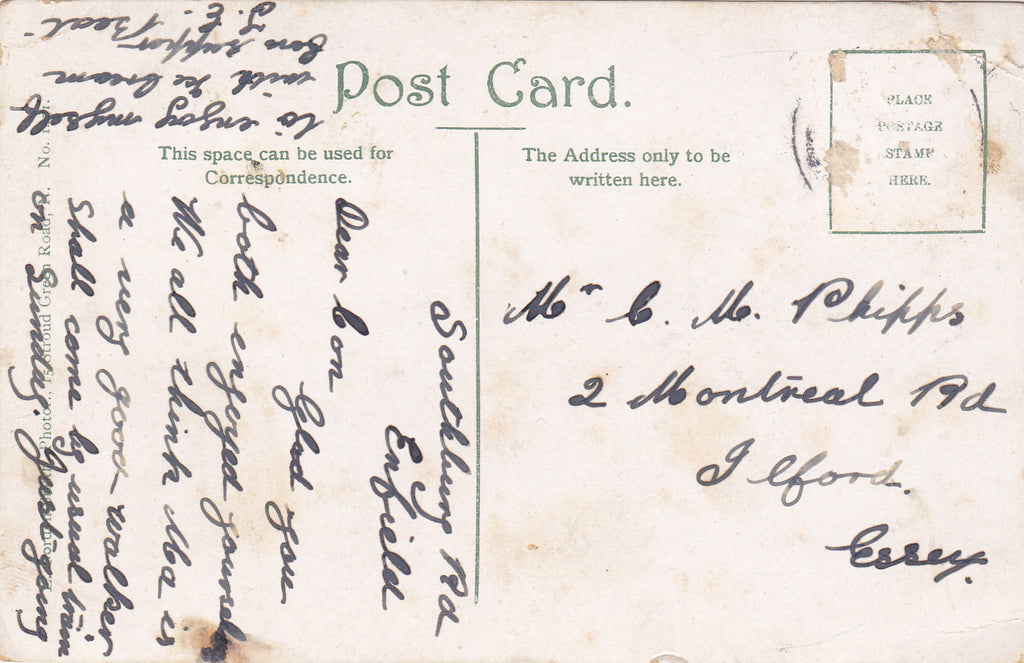 Post Card.
This space can be used for
Correspondence.
The Address only to be
written here.
PLACE
POSTAGE
STAMP
HERE.
Mr C. M. Phipps
2 Montreal Rd
Ilford.
Essex.
Southbury Rd
Enfield
Dear Con
Glad you
both enjoyed yourself
We all think Ma is
a very good walker
Shall come by usual train
on Sunday. Just going
to enjoy myself
with Ice Cream
for supper
S. E.
Photo., 15 Stroud Green Road, N. No.